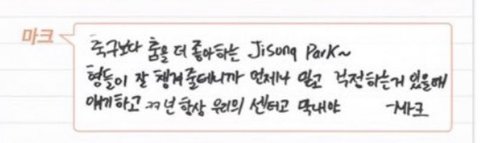 마크
축구보다 춤을 더 좋아하는 Jisung Park~
형들이 잘 챙겨줄테니까 언제나 믿고 걱정하는거 있을때
얘기하고 ㄲ 넌 항상 우리의 센터고 막내야 -마크